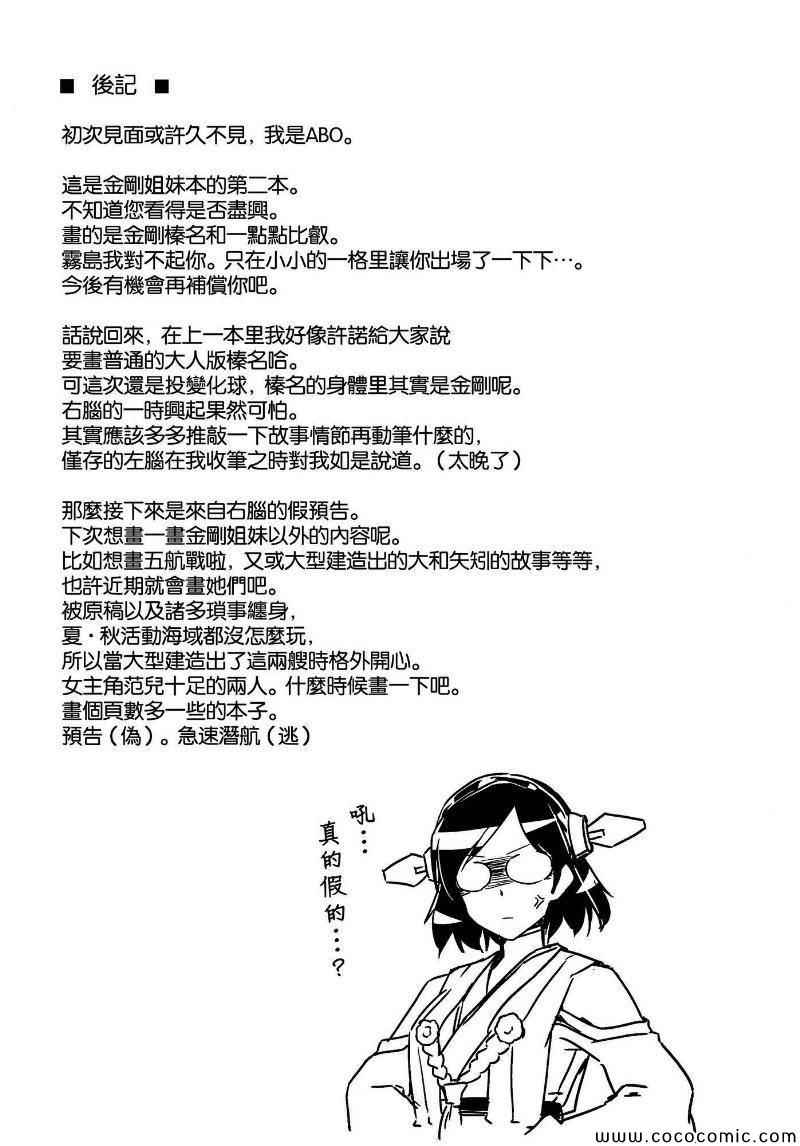 ■ 後記 ■
初次見面或許久不見，我是ABO。
這是金剛姐妹本的第二本。
不知道您看得是否盡興。
畫的是金剛榛名和一點點比叡。
霧島我對不起你。只在小小的一格里讓你出場了一下下…。
今後有機會再補償你吧。
話說回來，在上一本里我好像許諾給大家說
要畫普通的大人版榛名哈。
可這次還是投變化球，榛名的身體里其實是金剛呢。
右腦的一時興起果然可怕。
其實應該多多推敲一下故事情節再動筆什麼的，
僅存的左腦在我收筆之時對我如是說道。（太晚了）
那麼接下來是來自右腦的假預告。
下次想畫一畫金剛姐妹以外的內容呢。
比如想畫五航戰啦，又或大型建造出的大和矢矧的故事等等，
也許近期就會畫她們吧。
被原稿以及諸多瑣事纏身，
夏・秋活動海域都沒怎麼玩，
所以當大型建造出了這兩艘時格外開心。
女主角范兒十足的兩人。什麼時候畫一下吧。
畫個頁數多一些的本子。
預告（偽）。急速潛航（逃）
吼…
真的假的…？
www.cococomic.com